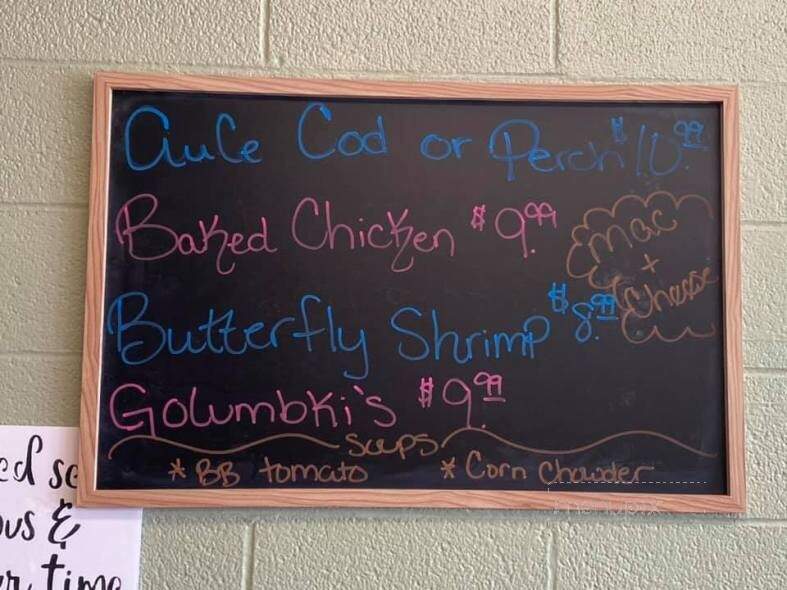 AuCe Cod or Perch $10.99
Baked Chicken $9.99
Mac
+
Cheese
Butterfly Shrimp $8.99
Golumbki's $9.99
Soups
* BB tomato * Corn Chowder
ed
us &
time